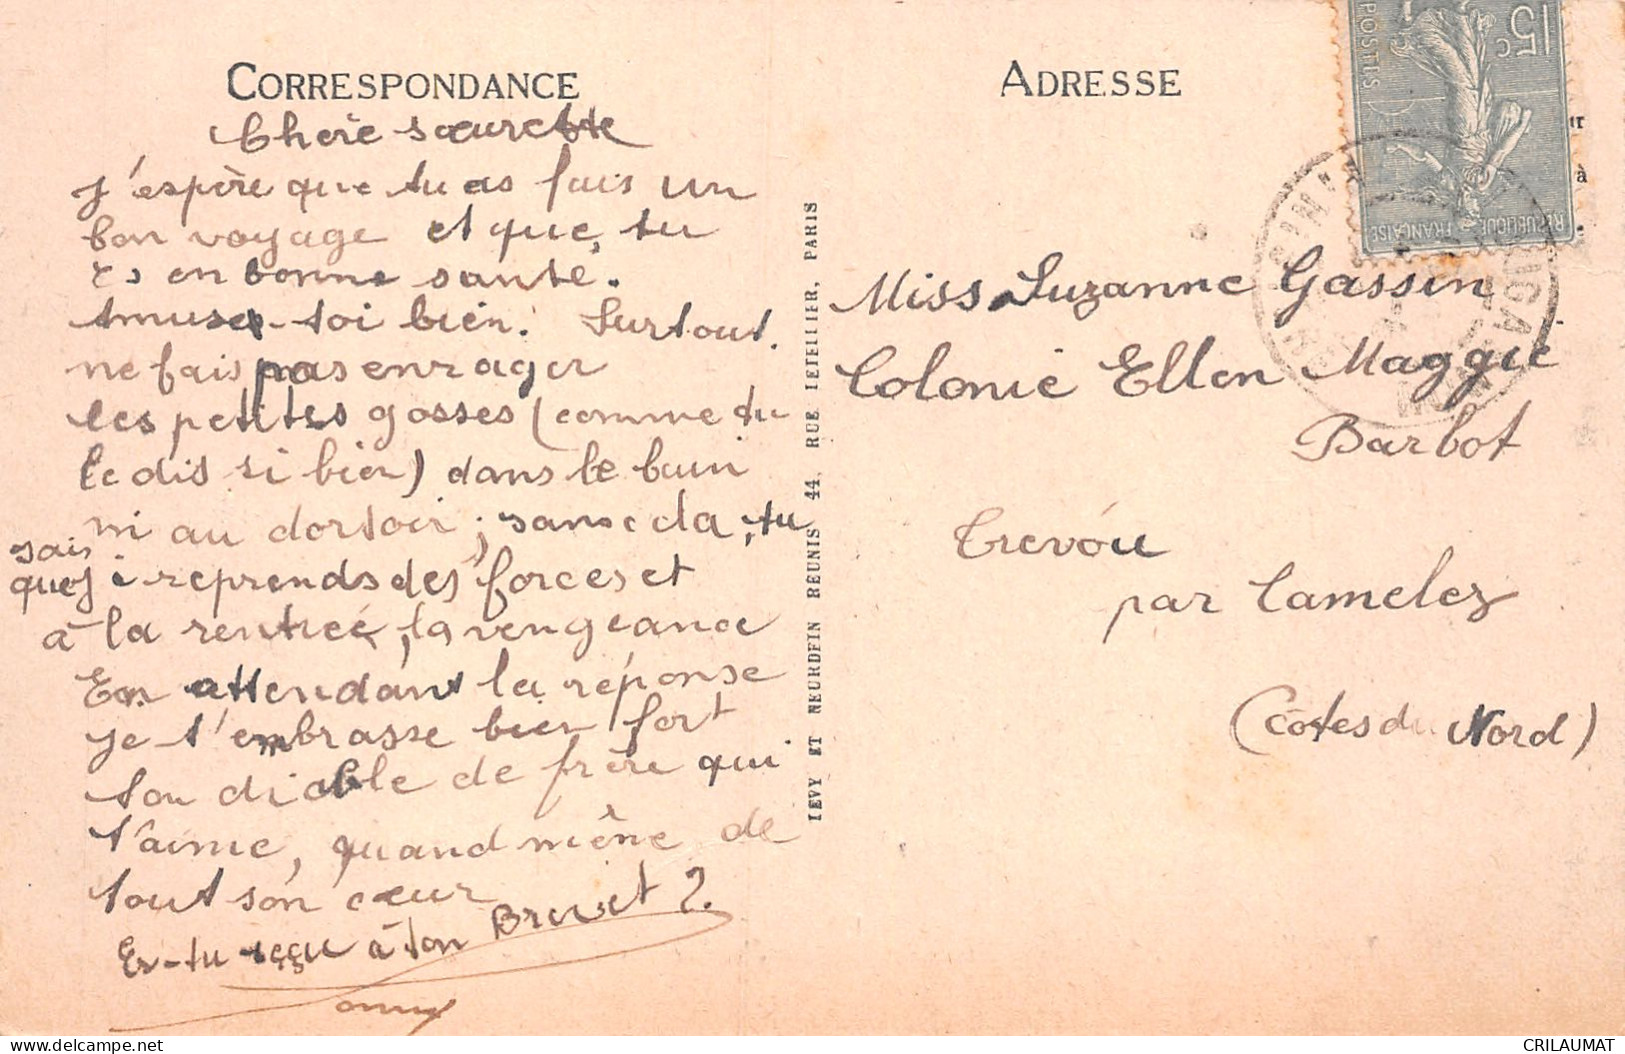 CORRESPONDANCE
Chère sœurette
J'espère que tu as fais un
bon voyage et que, tu
es en bonne santé.
Amuse-toi bien. Surtout.
ne fais pas enrager
les petites gosses (comme tu
le dis si bien) dans le bain
ni au dortoir ; sans cela, tu
sais
que je reprends des forces et
à la rentrée, la vengeance
En attendant la réponse
je t'embrasse bien fort
ton diable de frère qui
t'aime, quand même de
tout son cœur
Es-tu reçu à ton Brevet ?
LEVY ET NEURDEIN REUNIS 44, RUE LETELLIER, PARIS
ADRESSE
15c
POSTES
REPUBLIQUE FRANÇAISE
Miss Suzanne Gassin
Colonie Ellen Maggie
Barbot
Trevou
par Camelez
(Côtes du Nord)
CRILAUMAT